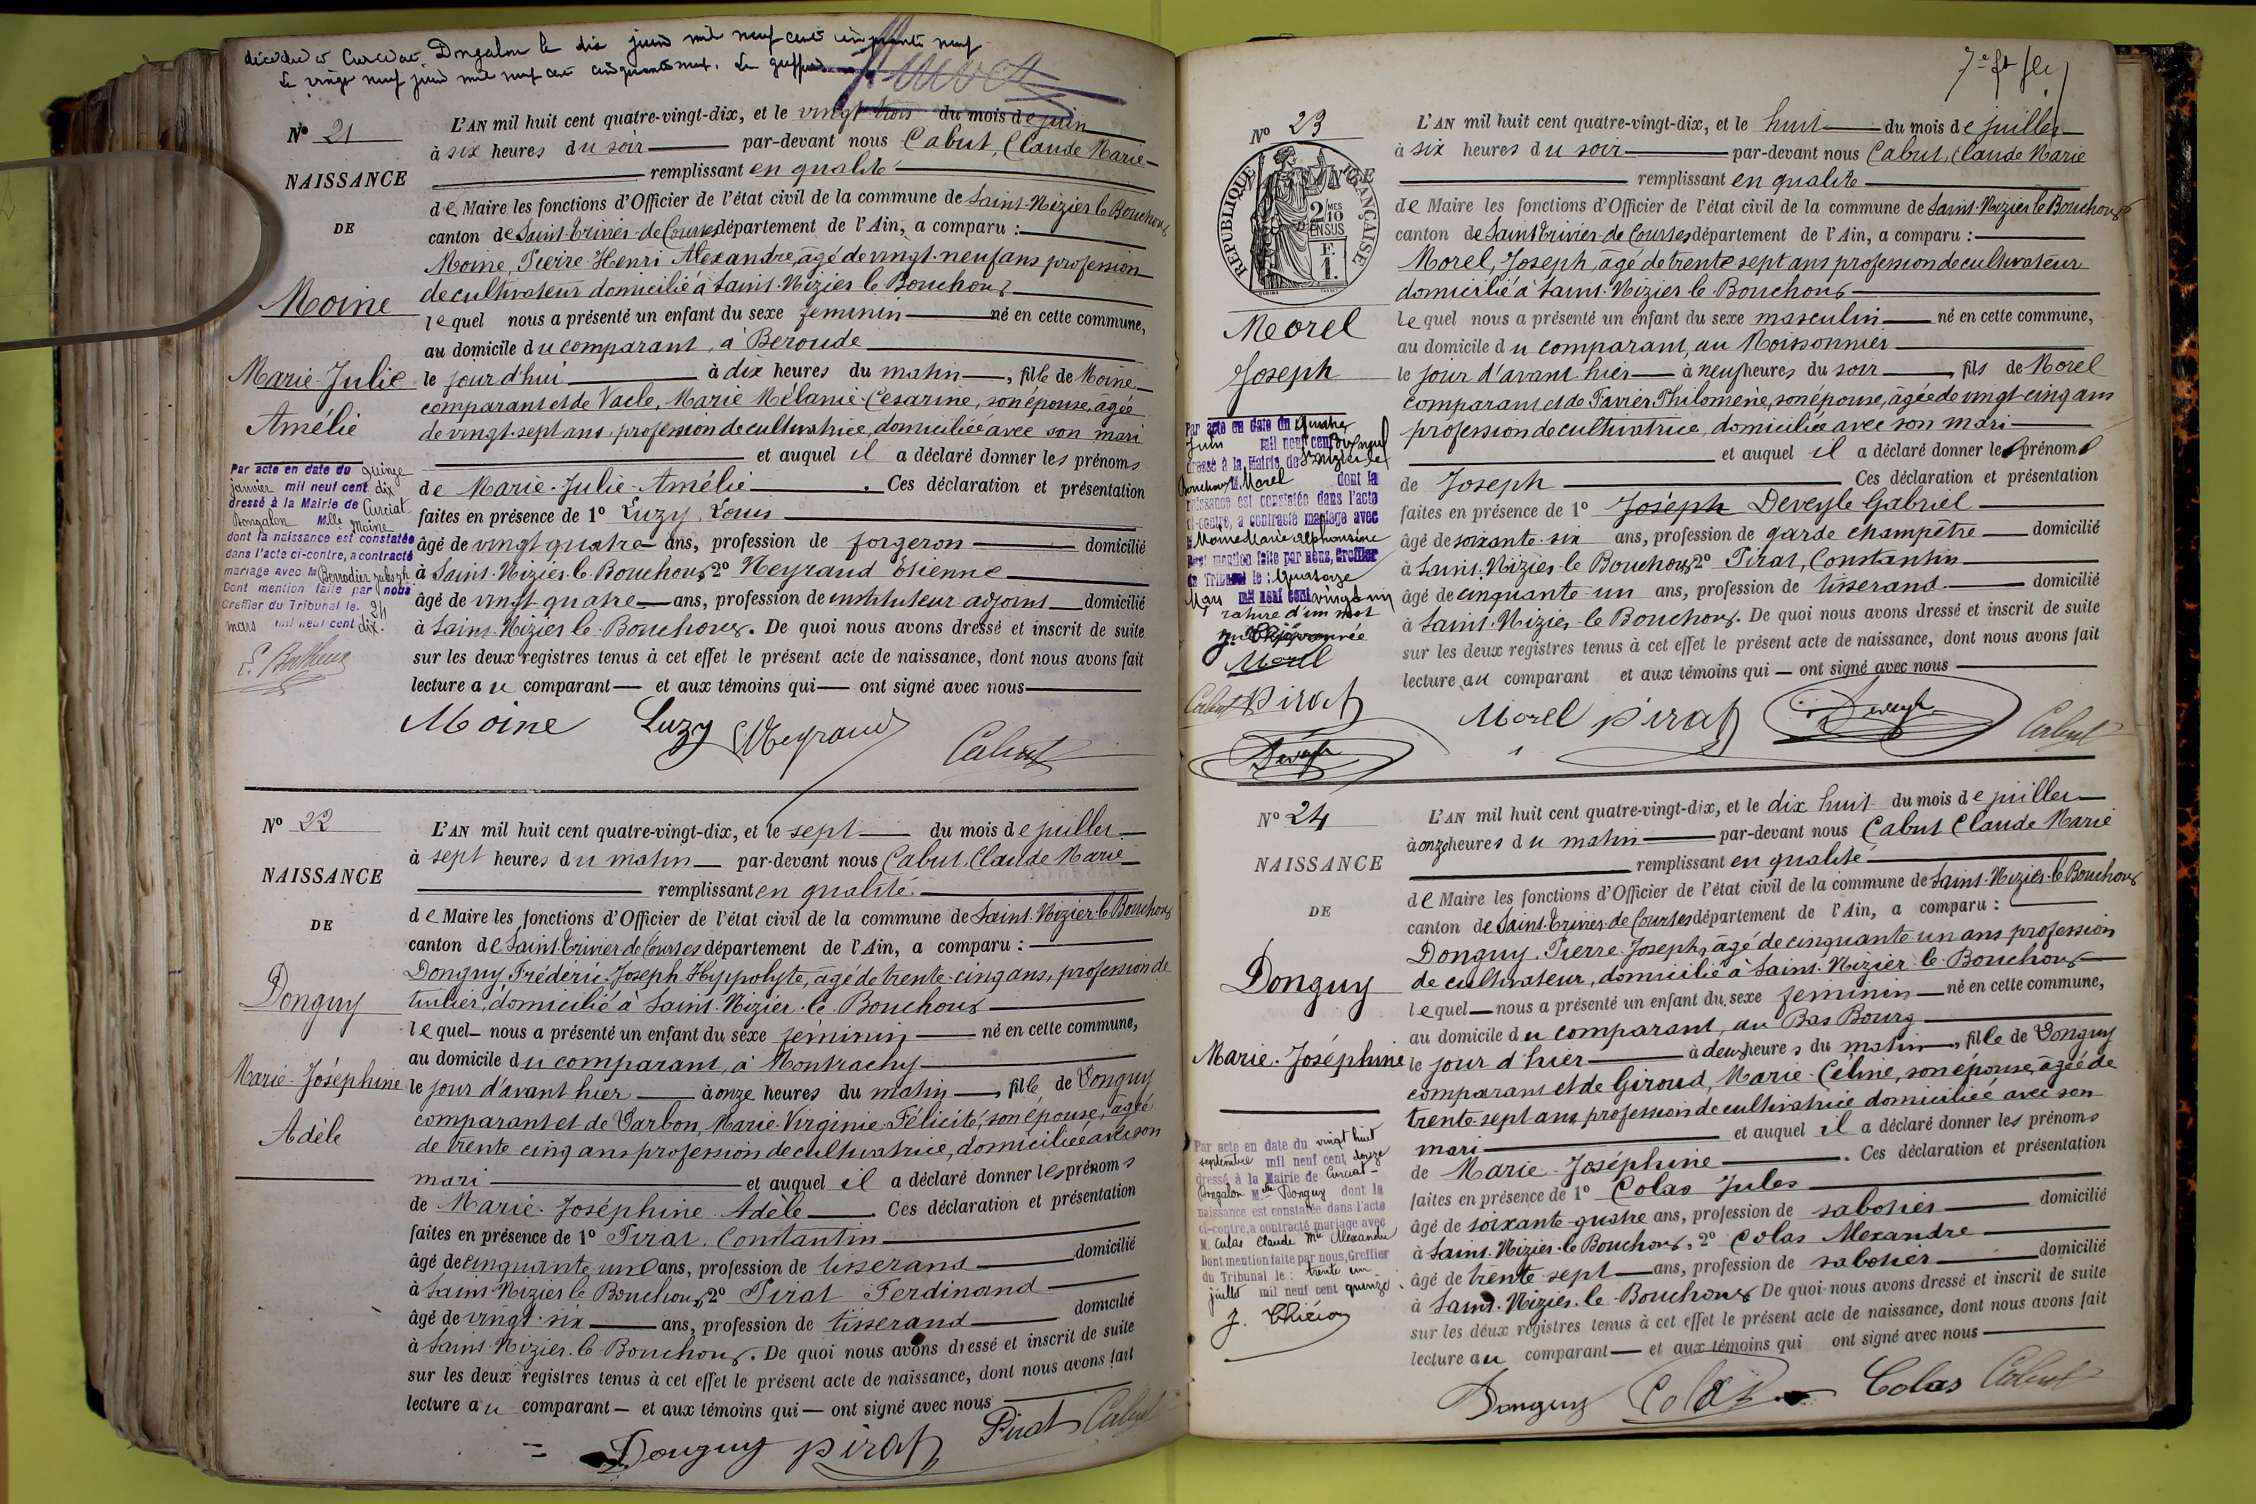 décédée à Curciat Dongalon le dix juin mil neuf cent cinquante neuf
Le vingt neuf juin mil neuf cent cinquante neuf. Le greffier
N° 21
NAISSANCE
DE
Moine
Marie-Julie
Amélie
Par acte en date du quinze
janvier mil neuf cent dix
dressé à la Mairie de Curciat
Dongalon Mlle Moine
dont la naissance est constatée
dans l'acte ci-contre, a contracté
mariage avec M. Berrodier Joseph
Dont mention faite par nous
Greffier du Tribunal le. 24
mars mil neuf cent dix.
L'AN mil huit cent quatre-vingt-dix, et le vingt-trois du mois de juin
à six heures du soir par-devant nous Cabut, Claude Marie
remplissant en qualité
de Maire les fonctions d'Officier de l'état civil de la commune de Saint-Nizier le Bouchoux
canton de Saint-Trivier-de-Courtes département de l'Ain, a comparu :
Moine, Pierre-Henri Alexandre, âgé de vingt-neuf ans profession
de cultivateur domicilié à Saint-Nizier le Bouchoux
lequel nous a présenté un enfant du sexe féminin né en cette commune,
au domicile du comparant, à Beroude
le jour d'hui à dix heures du matin, fille de Moine
comparant et de Vacle, Marie Mélanie-Césarine, son épouse, âgée
de vingt-sept ans, profession de cultivatrice, domiciliée avec son mari
et auquel il a déclaré donner les prénoms
de Marie-Julie-Amélie. Ces déclaration et présentation
faites en présence de 1° Luzy, Louis
âgé de vingt quatre ans, profession de forgeron domicilié
à Saint-Nizier-le-Bouchoux 2° Neyraud Etienne
âgé de vingt quatre ans, profession de instituteur adjoint domicilié
à Saint-Nizier le-Bouchoux. De quoi nous avons dressé et inscrit de suite
sur les deux registres tenus à cet effet le présent acte de naissance, dont nous avons fait
lecture au comparant et aux témoins qui ont signé avec nous
Moine Luzy Neyraud Cabut
N° 22
NAISSANCE
DE
Donguy
Marie-Joséphine
Adèle
L'AN mil huit cent quatre-vingt-dix, et le sept du mois de juillet
à sept heures du matin par-devant nous Cabut, Claude Marie
remplissant en qualité
de Maire les fonctions d'Officier de l'état civil de la commune de Saint-Nizier-le Bouchoux
canton de Saint-Trivier de Courtes département de l'Ain, a comparu :
Donguy, Fréderic-Joseph Hyppolyte, âgé de trente-cinq ans, profession de
tuilier, domicilié à Saint-Nizier-le-Bouchoux
lequel nous a présenté un enfant du sexe féminin né en cette commune,
au domicile du comparant, à Montrachy
le jour d'avant hier à onze heures du matin, fille de Donguy
comparant et de Varbon, Marie-Virginie-Félicité, son épouse, âgée
de trente cinq ans profession de cultivatrice, domiciliée avec son
mari et auquel il a déclaré donner les prénoms
de Marie-Joséphine-Adèle. Ces déclaration et présentation
faites en présence de 1° Pirat, Constantin
âgé de cinquante un ans, profession de tisserand domicilié
à Saint-Nizier le Bouchoux, 2° Pirat Ferdinand
âgé de vingt-six ans, profession de tisserand domicilié
à Saint-Nizier-le Bouchoux. De quoi nous avons dressé et inscrit de suite
sur les deux registres tenus à cet effet le présent acte de naissance, dont nous avons fait
lecture au comparant et aux témoins qui ont signé avec nous
Donguy Pirat Pirat Cabut
N° 23
RÉPUBLIQUE FRANÇAISE
2/10 MES EN SUS
F. 1.
Morel
Joseph
Par acte en date du quatre
Juin mil neuf cent
dressé à la Mairie de St Nizier le
Bouchoux M. Morel dont la
naissance est constatée dans l'acte
ci-contre, a contracté mariage avec
Moine Marie Alphonsine
Dont mention faite par nous, Greffier
du Tribunal le : Quatorze
Mars mil neuf cent vingt un
rature d'un mot
approuvée
Morel
Cabut Pirat
Deveyle
L'AN mil huit cent quatre-vingt-dix, et le huit du mois de juillet
à six heures du soir par-devant nous Cabut, Claude Marie
remplissant en qualité
de Maire les fonctions d'Officier de l'état civil de la commune de Saint-Nizier le Bouchoux
canton de Saint-Trivier-de-Courtes département de l'Ain, a comparu :
Morel, Joseph, âgé de trente sept ans profession de cultivateur
domicilié à Saint-Nizier le-Bouchoux
lequel nous a présenté un enfant du sexe masculin né en cette commune,
au domicile du comparant, au Moissonnier
le jour d'avant-hier à neuf heures du soir, fils de Morel
comparant et de Favier Philomène, son épouse, âgée de vingt-cinq ans
profession de cultivatrice, domiciliée avec son mari
et auquel il a déclaré donner le prénom
de Joseph Ces déclaration et présentation
faites en présence de 1° Joseph Deveyle Gabriel
âgé de soixante-six ans, profession de garde champêtre domicilié
à Saint-Nizier-le Bouchoux 2° Pirat, Constantin
âgé de cinquante-un ans, profession de tisserand domicilié
à Saint-Nizier-le Bouchoux. De quoi nous avons dressé et inscrit de suite
sur les deux registres tenus à cet effet le présent acte de naissance, dont nous avons fait
lecture au comparant et aux témoins qui ont signé avec nous
Morel Pirat Deveyle Cabut
N° 24
NAISSANCE
DE
Donguy
Marie-Joséphine
Par acte en date du vingt huit
septembre mil neuf cent douze
dressé à la Mairie de Curciat-
Dongalon Mlle Donguy dont la
naissance est constatée dans l'acte
ci-contre, a contracté mariage avec
M. Culas Claude Mie Alexandre
Dont mention faite par nous, Greffier
du Tribunal le : trente un
juillet mil neuf cent quinze.
L'AN mil huit cent quatre-vingt-dix, et le dix huit du mois de juillet
à onze heures du matin par-devant nous Cabut Claude Marie
remplissant en qualité
de Maire les fonctions d'Officier de l'état civil de la commune de Saint-Nizier-le Bouchoux
canton de Saint-Trivier-de-Courtes département de l'Ain, a comparu :
Donguy, Pierre-Joseph, âgé de cinquante un ans profession
de cultivateur, domicilié à Saint-Nizier-le-Bouchoux
lequel nous a présenté un enfant du sexe féminin né en cette commune,
au domicile du comparant, au Bas Bourg
le jour d'hier à deux heures du matin, fille de Donguy
comparant et de Giroud, Marie-Céline, son épouse, âgée de
trente-sept ans, profession de cultivatrice domiciliée avec son
mari et auquel il a déclaré donner les prénoms
de Marie-Joséphine. Ces déclaration et présentation
faites en présence de 1° Colas Jules
âgé de soixante-quatre ans, profession de sabotier domicilié
à Saint-Nizier-le Bouchoux, 2° Colas Alexandre
âgé de trente-sept ans, profession de sabotier domicilié
à Saint-Nizier-le-Bouchoux De quoi nous avons dressé et inscrit de suite
sur les deux registres tenus à cet effet le présent acte de naissance, dont nous avons fait
lecture au comparant et aux témoins qui ont signé avec nous
Donguy Colas Colas Cabut